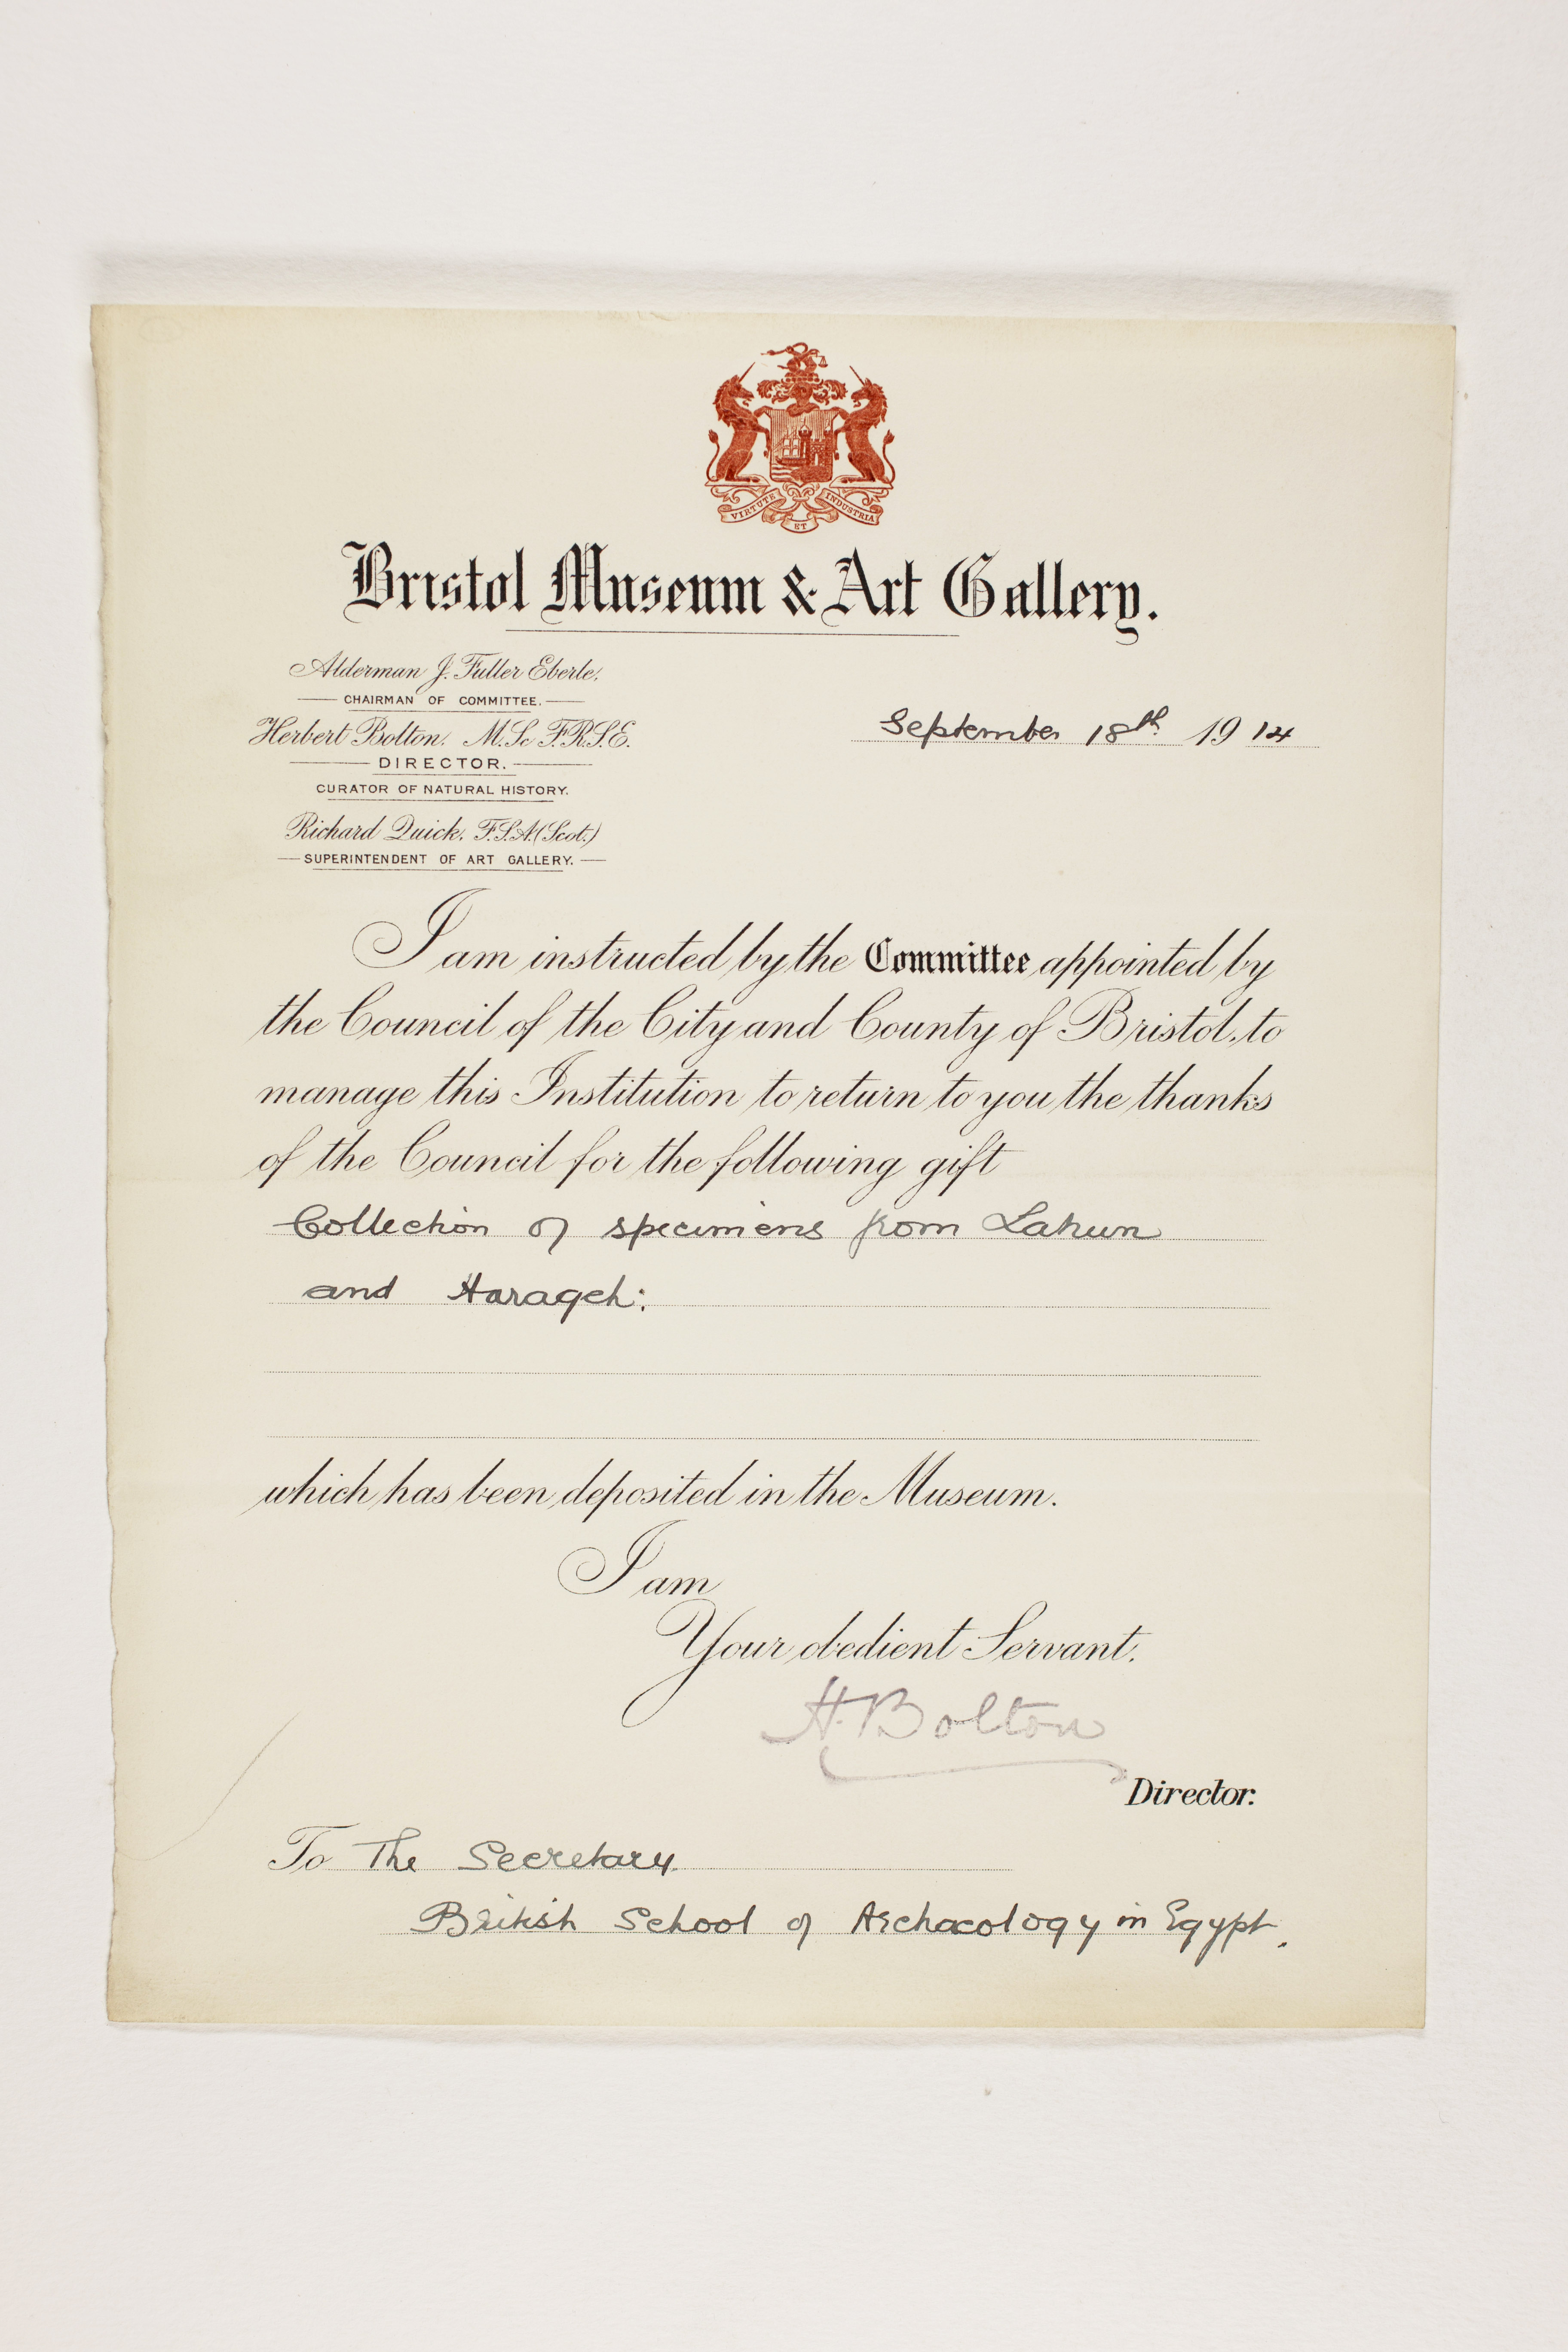 VIRTUTE ET INDUSTRIA
Bristol Museum & Art Gallery.
Alderman J. Fuller Eberle,
CHAIRMAN OF COMMITTEE.
Herbert Bolton. M.Sc F.R.S.E.
DIRECTOR.
CURATOR OF NATURAL HISTORY.
Richard Quick. F.S.A.(Scot.)
SUPERINTENDENT OF ART GALLERY.
September 18th. 1914
I am instructed by the Committee appointed by
the Council of the City and County of Bristol, to
manage this Institution to return to you the thanks
of the Council for the following gift
Collection of specimens from Lahun
and Harageh:
which has been deposited in the Museum.
I am
Your obedient Servant.
H. Bolton
Director.
To The Secretary.
British School of Archaeology in Egypt.